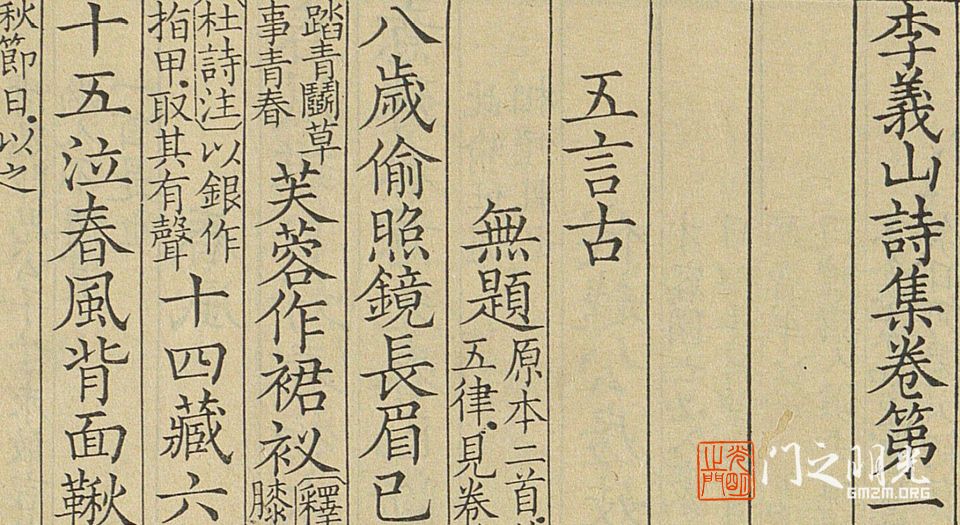 李義山詩集卷第一
五言古
無題原本二首
五律見卷
八歲偷照鏡長眉已
踏青鬬草
事青春
芙蓉作裙衩釋
膝
杜詩注以銀作
指甲取其有聲
十四藏六
十五泣春風背面鞦
秋節日以之
光明之门
GMZM.ORG